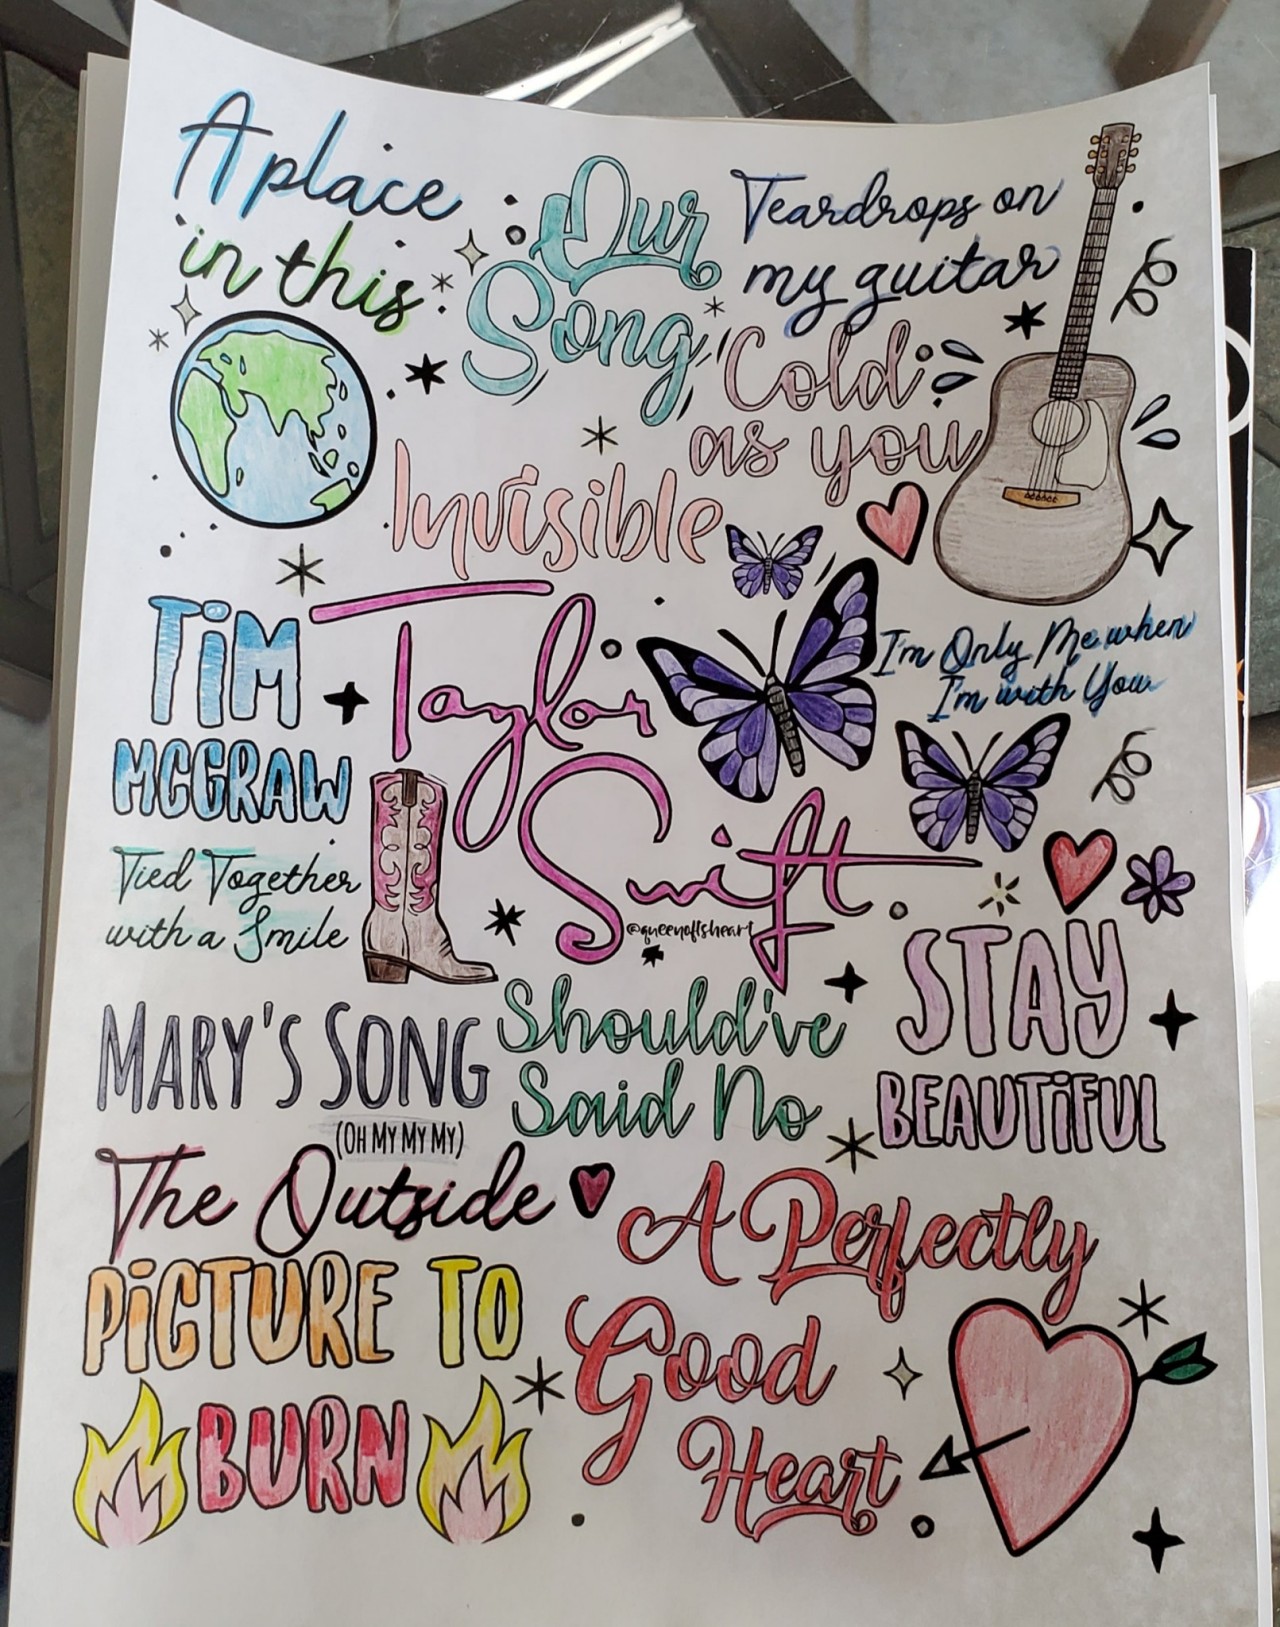 A place
in this
Our
Song
Teardrops on
my guitar
Cold
as you
Invisible
TiM
MCGRAW
Taylor
Swift
@queenoftsheart
I'm Only Me when
I'm with You
Tied Together
with a Smile
STAY
BEAUTiFUL
MARY'S SONG
(OH MY MY MY)
Should've
Said No
The Outside
A Perfectly
Good
Heart
PiCTURE TO
BURN